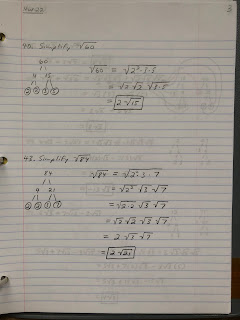 3
40. Simplify √60
60
4 15
② ② ③ ⑤
√60 = √2²·3·5
= √2 √2 √3·5
= 2√15
43. Simplify √84
84
4 21
② ② ③ ⑦
√84 = √2²·3·7
= √2² √3 √7
= √2·2 √3 √7
= √2 √2 √3 √7
= 2 √3 √7
= 2√21